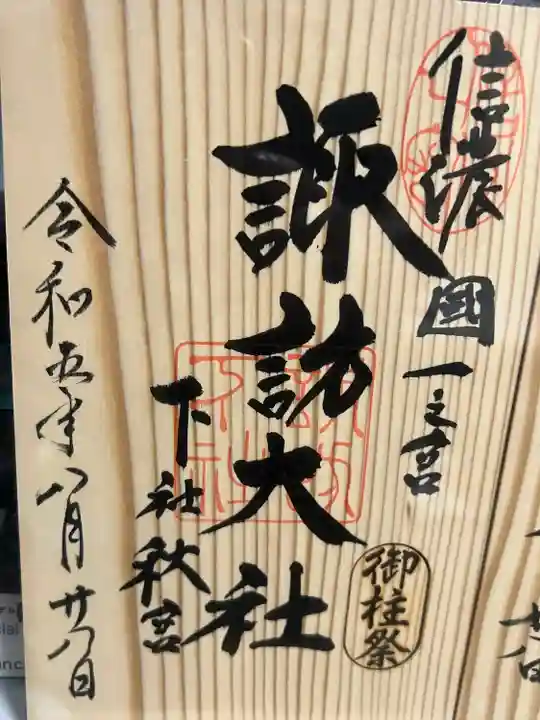 信濃國一之宮
諏訪大社
下社秋宮
御柱祭
令和五年八月廿八日